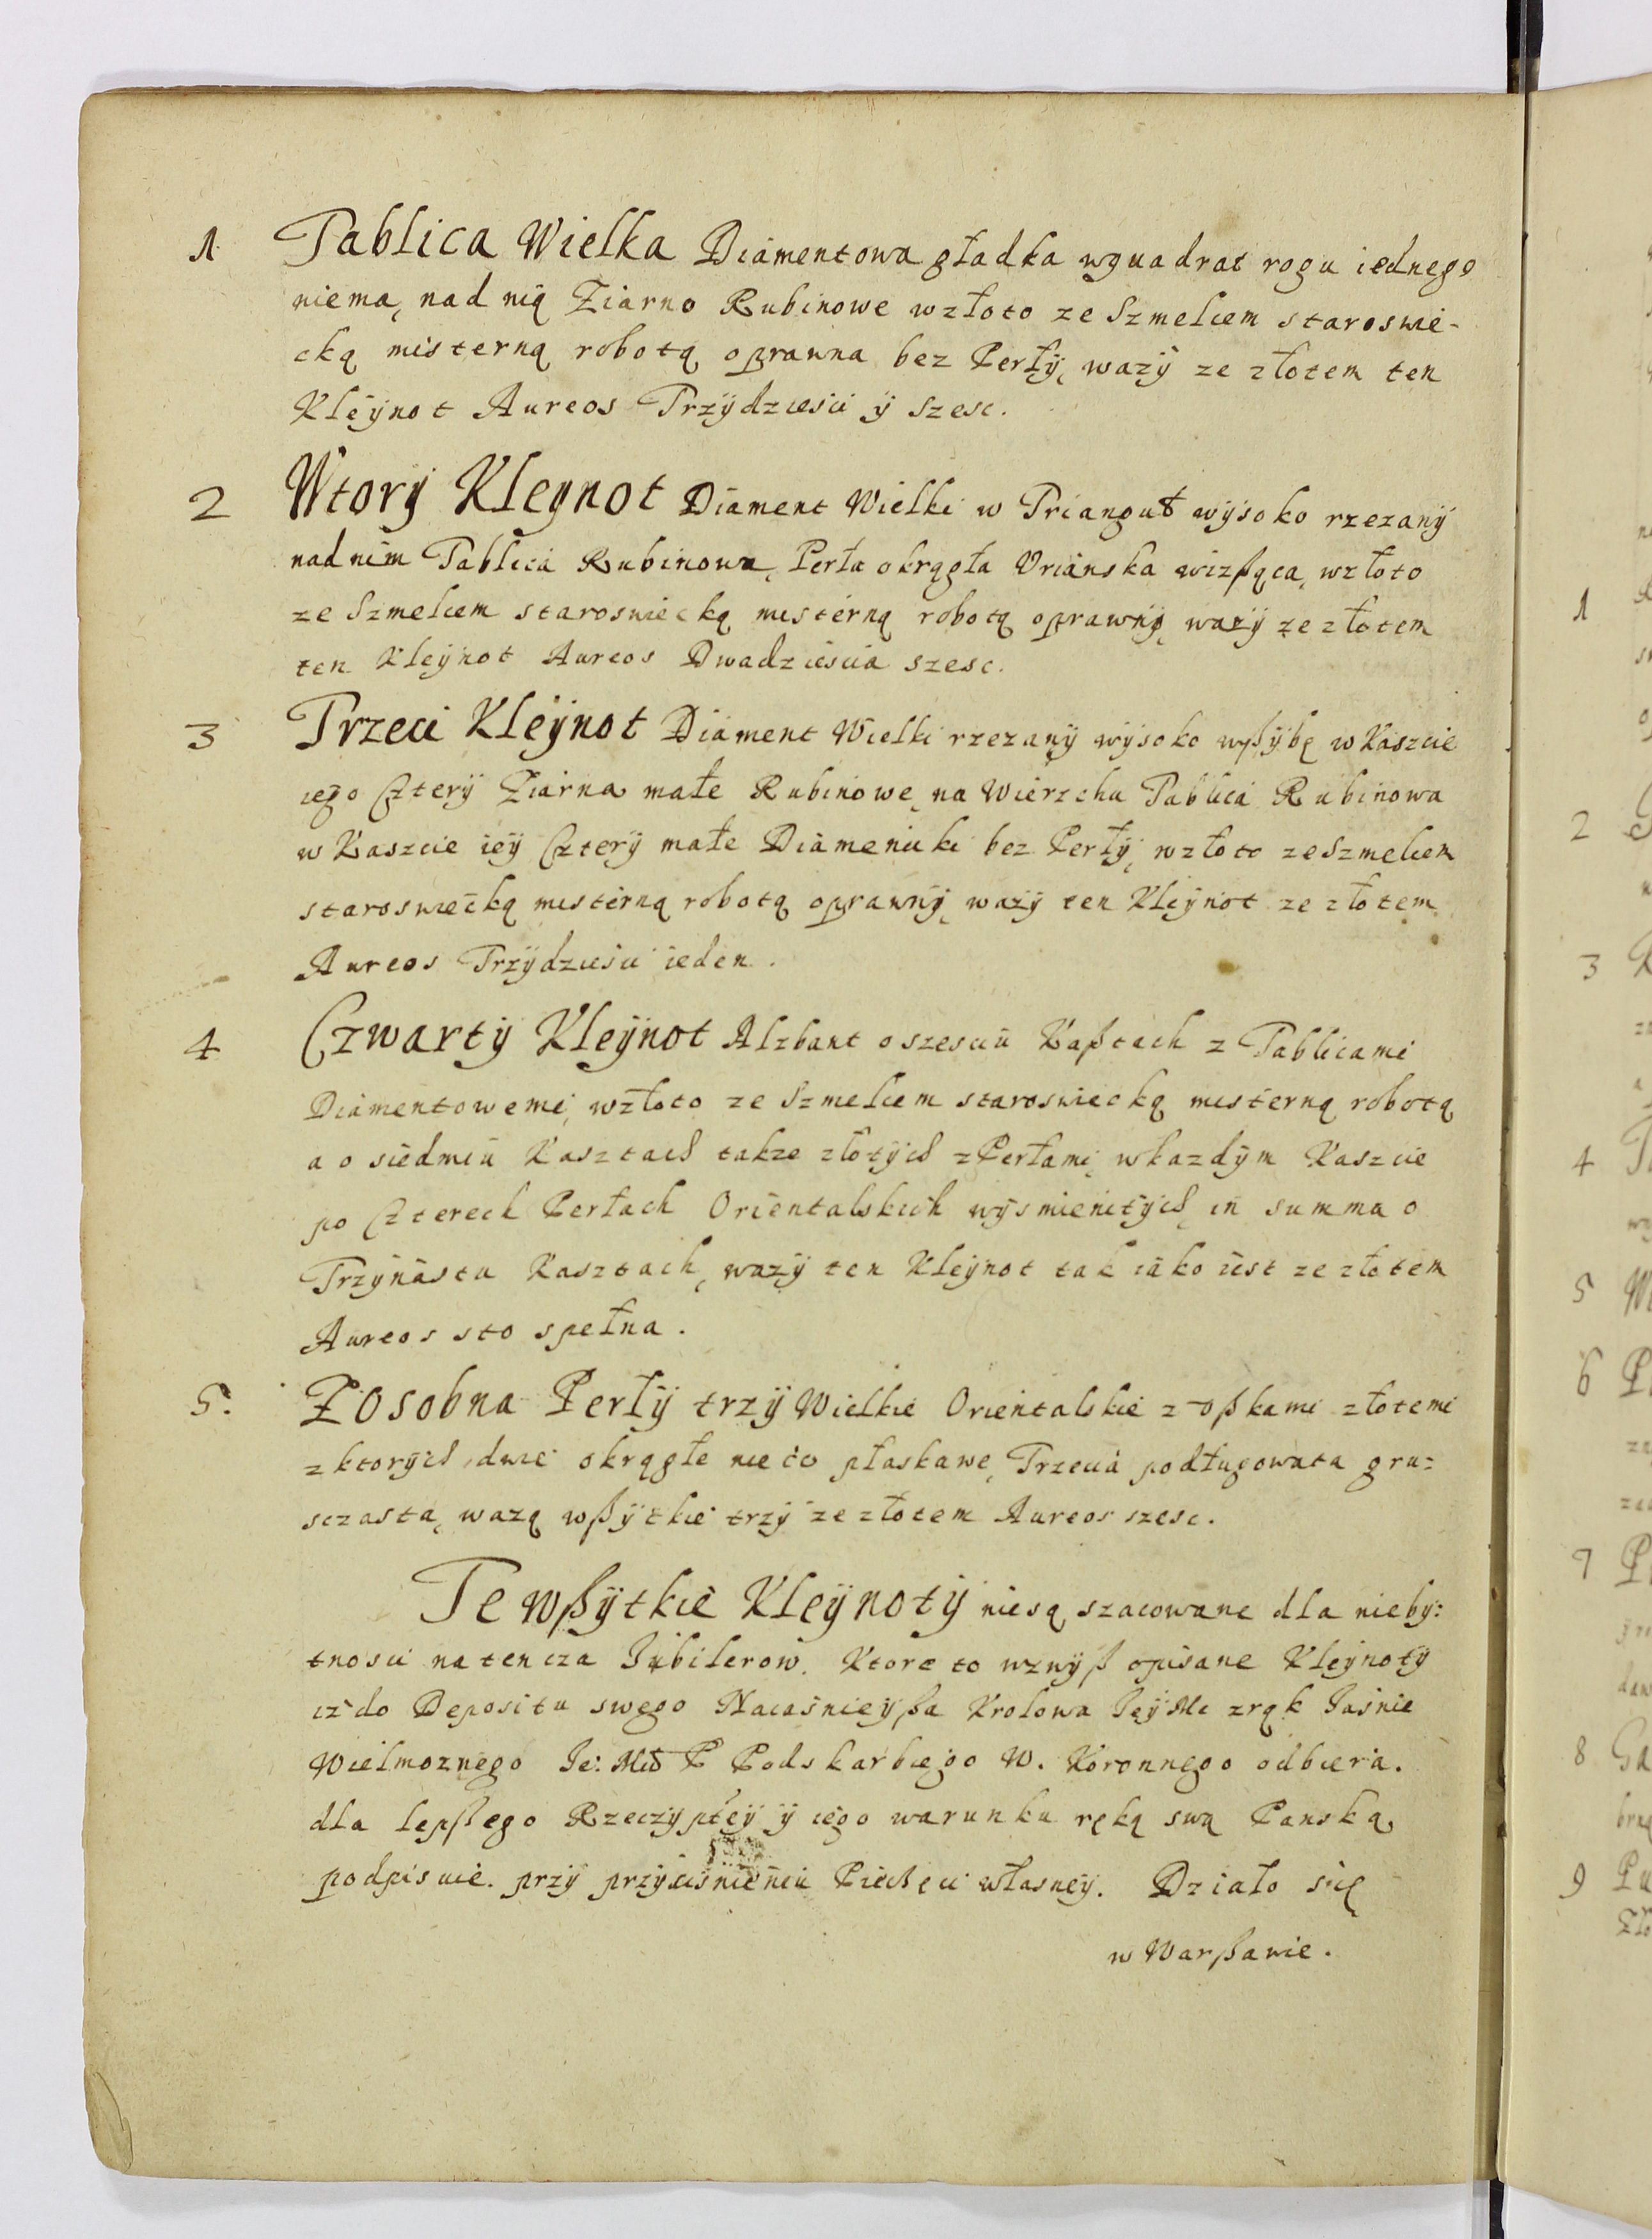 1 Tablica Wielka Diamentowa gładka wquadrat rogu iednego
niema, nad nią Ziarno Rubinowe wzłoto ze Szmelcem staroswie-
cką misterną robotą oprawna bez Perły, wazÿ ze złotem ten
Kleÿnot Aureos Trzÿdziesci ÿ szesc.
2 Wtorÿ Kleynot Diament Wielki w Trianguł wÿsoko rzezanÿ
nad nim Tablica Rubinowa, Perła okrągła Urianska wizßąca, wzłoto
ze Szmelcem staroswiecką misterną robotą oprawnÿ, wazÿ ze złotem
ten Kleÿnot Aureos Dwadziescia szesc.
3 Trzeci Kleÿnot Diament Wielki rzezanÿ wÿsoko wßÿbę w Kaszcie
iego Czterÿ Ziarna małe Rubinowe, na Wierzchu Tablica Rubinowa
w Kaszcie ieÿ Czterÿ małe Diamenciki bez Perłÿ, wzłoto ze Szmelcem
staroswiecką misterną robotą oprawnÿ, wazÿ ten Kleÿnot ze złotem
Aureos Trzÿdziesci ieden.
4 Czwartÿ Kleÿnot Alzbant o szesciu Kaßtach z Tablicami
Diamentowemi, wzłoto ze Szmelcem staroswiecką misterną robotą
a o siedmiu Kasztach takze złotÿch z Perłami, wkazdÿm Kaszcie
po Czterech Perłach Orientalskich wÿsmienitÿch, in summa o
Trzÿnastu Kasztach, wazÿ ten Kleÿnot tak iako iest ze złotem
Aureos sto spełna.
5. Zosobna Perłÿ trzÿ Wielkie Orientalskie z oßkami złotemi
z ktorÿch, dwie okrągłe nieco płaskawe, Trzecia podługowata gru=
sczasta, wazą wßÿtkie trzÿ ze złotem Aureos szesc.
Te wßÿtkie Kleÿnotÿ niesą szacowane dla nieby:
tnosci na ten cza Iubilerow. Ktore to wzwÿß opisane Kleÿnotÿ
iz do Depositu swego Naiasnieÿßa Krolowa IeÿMc zrąk Iasnie
Wielmoznego Ie: Mci P Podskarbiego W. Koronnego odbiera.
dla lepßego Rzeczÿpteÿ ÿ iego warunku ręką swą Panską
podpisuie. przÿ przÿcisnieniu Pieczęci własneÿ. Działo się
w Warßawie.
1
2
3
4
5
6
7
8
9